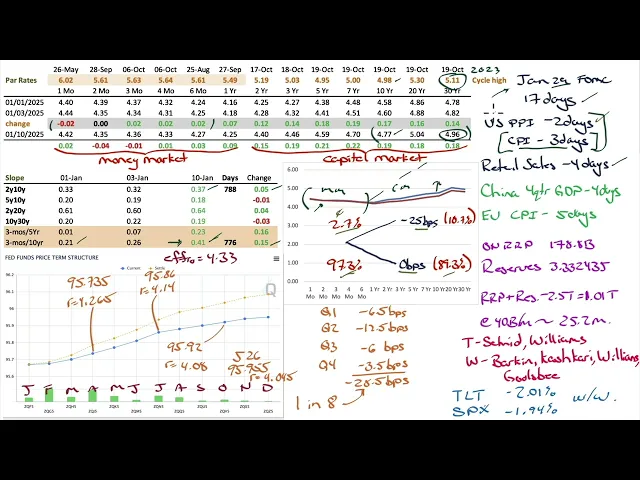 26-May 28-Sep 06-Oct 06-Oct 25-Aug 27-Sep 17-Oct 18-Oct 19-Oct 19-Oct 19-Oct 19-Oct 19-Oct 2023
Par Rates 6.02 5.61 5.63 5.64 5.61 5.49 5.19 5.03 4.95 5.00 4.98 5.30 5.11 Cycle high
1 Mo 2 Mo 3 Mo 4 Mo 6 Mo 1 Yr 2 Yr 3 Yr 5 Yr 7 Yr 10 Yr 20 Yr 30 Yr
01/01/2025 4.40 4.39 4.37 4.32 4.24 4.16 4.25 4.27 4.38 4.48 4.58 4.86 4.78
01/03/2025 4.44 4.35 4.34 4.31 4.25 4.18 4.28 4.32 4.41 4.51 4.60 4.88 4.82
change -0.02 0.00 0.02 0.02 0.02 0.07 0.12 0.14 0.18 0.19 0.17 0.16 0.14
01/10/2025 4.42 4.35 4.36 4.33 4.27 4.25 4.40 4.46 4.59 4.70 4.77 5.04 4.96
0.02 -0.04 -0.01 0.01 0.03 0.09 0.15 0.19 0.21 0.22 0.19 0.18 0.18
money market
capital market
Slope 01-Jan 03-Jan 10-Jan Days Change
2y10y 0.33 0.32 0.37 788 0.05
5y10y 0.20 0.19 0.18 -0.01
2y20y 0.61 0.60 0.64 0.04
10y30y 0.20 0.22 0.19 -0.03
3-mos/5Yr 0.01 0.07 0.23 0.16
3-mos/10yr 0.21 0.26 0.41 776 0.15
effr₀ = 4.33
FED FUNDS PRICE TERM STRUCTURE
Current Settle
95.735
r=4.265
95.86
r=4.14
95.92
r=4.08
J26
95.955
r=4.045
J F M A M J J A S O N D
6.00
5.00
4.00
3.00
2.00
1.00
0.00
mm
cm
2.7%
97.3%
-25bps (10.7%)
0bps (89.3%)
1 Mo 2 Mo 3 Mo 4 Mo 6 Mo 1 Yr 2 Yr 3 Yr 5 Yr 7 Yr 10 Yr 20 Yr 30 Yr
Q1 -6.5bps
Q2 -12.5bps
Q3 -6 bps
Q4 -3.5bps
-28.5bps
1 in 8
Jan 29 FOMC
17 days
US PPI - 2days
[CPI - 3days]
Retail Sales - 4 days
China 4qtr GDP - 4days
EU CPI - 5days
ON RRP 178.8B
Reserves 3.332435
RRP+Res. - 2.5T = 1.01T
@ 40B/m ~ 25.2m.
T - Schmid, Williams
W - Barkin, Kashkari, Williams, Goolsbee
TLT -2.01%
SPX -1.94%
w/w.